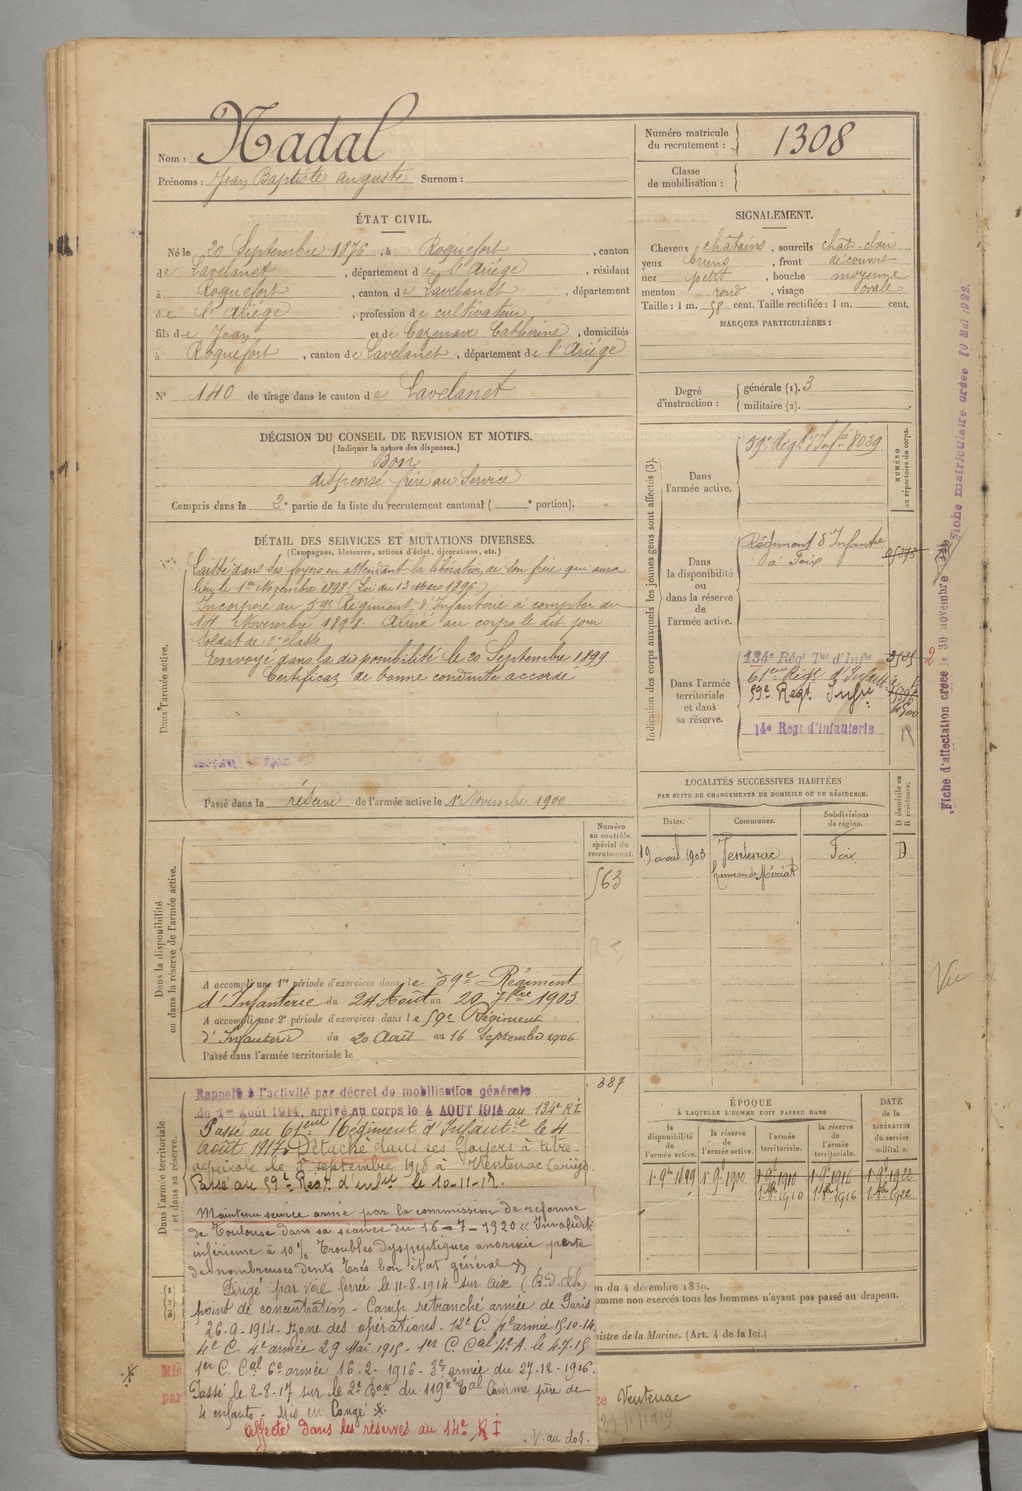 Nom : Nadal
Prénoms : Jean Baptiste auguste Surnom :
Numéro matricule du recrutement : 1308
Classe de mobilisation :
ÉTAT CIVIL.
Né le 20 Septembre 1876, à Roquefort, canton
de Lavelanet, département de l'Ariége, résidant
à Roquefort, canton de Lavelanet, département
de l'Ariége, profession de cultivateur
fils de Jean et de Cazenave Catherine, domiciliés
à Roquefort, canton de Lavelanet, département de l'Ariége
N° 140 de tirage dans le canton de Lavelanet
SIGNALEMENT.
Cheveux châtains, sourcils chât. clair
yeux bruns, front découvert
nez petit, bouche moyenne
menton rond, visage ovale
Taille : 1 m. 58 cent. Taille rectifiée : 1 m. cent.
MARQUES PARTICULIÈRES :
Degré d'instruction : générale (1). 3
militaire (2).
DÉCISION DU CONSEIL DE REVISION ET MOTIFS.
(Indiquer la nature des dispenses.)
Bon
dispensé frère au Service
Compris dans la 2e partie de la liste du recrutement cantonal ( e portion).
DÉTAIL DES SERVICES ET MUTATIONS DIVERSES.
(Campagnes, blessures, actions d'éclat, décorations, etc.)
Dans l'armée active.
Laissé dans ses foyers en attendant la libération de son frère qui aura
lieu le 1er Novembre 1898 (Loi du 13 Mars 1896.)
Incorporé au 59e Régiment d'Infanterie à compter du
14 Novembre 1898. Arrivé au corps le dit jour
Soldat de 2e classe
Envoyé dans la disponibilité le 20 Septembre 1899
Certificat de bonne conduite accordé
Passé dans la réserve de l'armée active le 1er Novembre 1900
Indication des corps auxquels les jeunes gens sont affectés (3).
NUMÉRO au répertoire du corps.
Dans l'armée active.
59e Régt d'Infie 8029
Dans la disponibilité ou dans la réserve de l'armée active.
Régiment d'Infantie
à Foix
Dans l'armée territoriale et dans sa réserve.
134e Régt Tal d'Infie
61eme Régt d'Infant
59e Regt Infie
14e Regt d'Infanterie
LOCALITÉS SUCCESSIVES HABITÉES
PAR SUITE DE CHANGEMENTS DE DOMICILE OU DE RÉSIDENCE.
Dates. Communes. Subdivisions de région. D domicile ou R résidence.
19 avril 1903 Ventenac Foix D
Numéro au contrôle spécial du recrutement.
563
Dans la disponibilité ou dans la réserve de l'armée active.
A accompli une 1re période d'exercices dans le 59e Régiment
d'Infanterie du 24 Août au 20 7bre 1903
A accompli une 2e période d'exercices dans le 59e Régiment
d'Infanterie du 20 Août au 16 Septembre 1906
Passé dans l'armée territoriale le
387
Dans l'armée territoriale et dans sa réserve.
Rappelé à l'activité par décret de mobilisation générale
du 1er Août 1914, arrivé au corps le 4 AOUT 1914 au 134e RI
Passé au 61eme Régiment d'Infantie le 4
août 1917. Détaché dans ses foyers à titre
agricole le septembre 1918 à Ventenac (ariège).
Passé au 59e Regt d'infie le 10-11-18.
Maintenu service armé par la commission de réforme
de Toulouse dans sa séance du 16-7-1920 "Invalidité
inférieure à 10% Troubles dyspeptiques anorexie perte
de nombreuses dents très bon état général"
Dirigé par voie ferrée le 11-8-1914 sur Aix (B.d.Rh)
point de concentration - Camp retranché armée de Paris
26-9-1914. zone des opérations. 12e C. 4e armée 15-10-14
4e C. 4e armée 29 Mai 1915 - 1er C Cal 4e A. le 4-7-15
1er C. Cal 6e armée 16-2-1916 - 3e armée du 27-12-1916.
Passé le 2-8-17 sur le 2e Bon du 119e Tal Comme père de
4 enfants. Mis en Congé
affecté dans les réserves au 14e RI
V. au dos.
ÉPOQUE
À LAQUELLE L'HOMME DOIT PASSER DANS
DATE de la LIBÉRATION du service militaire.
la disponibilité de l'armée active. la réserve de l'armée active. l'armée territoriale. la réserve de l'armée territoriale.
1-9bre 1899 1-9e 1900 1-9e 1910 1-9e 1916 1-9e 1922
1-8bre 1910 1-8bre 1916 1-8bre 1922
on du 4 décembre 1889.
omme non exercés tous les hommes n'ayant pas passé au drapeau.
nistre de la Marine. (Art. 4 de la loi.)
Mis
par
ce Ventenac
Fiche d'affectation créée le 30 novembre
Fiche matriculaire créée 10 Mai 1922.
2
Vu